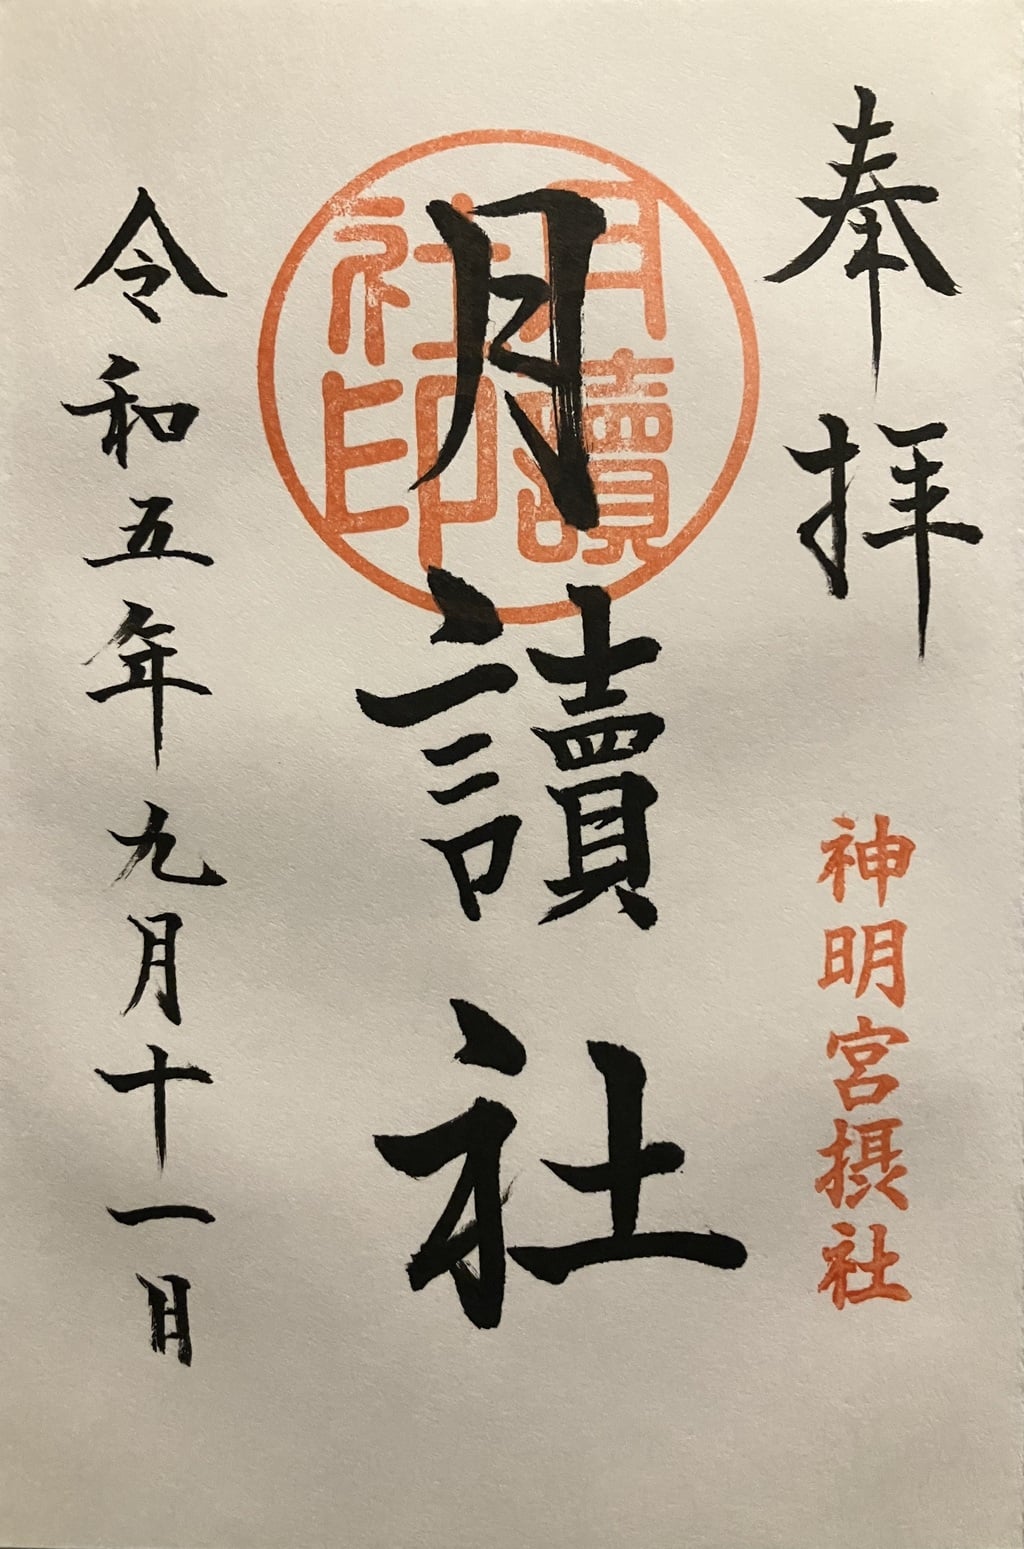 奉拝
神明宮摂社
月讀社
月讀社印
令和五年九月十一日